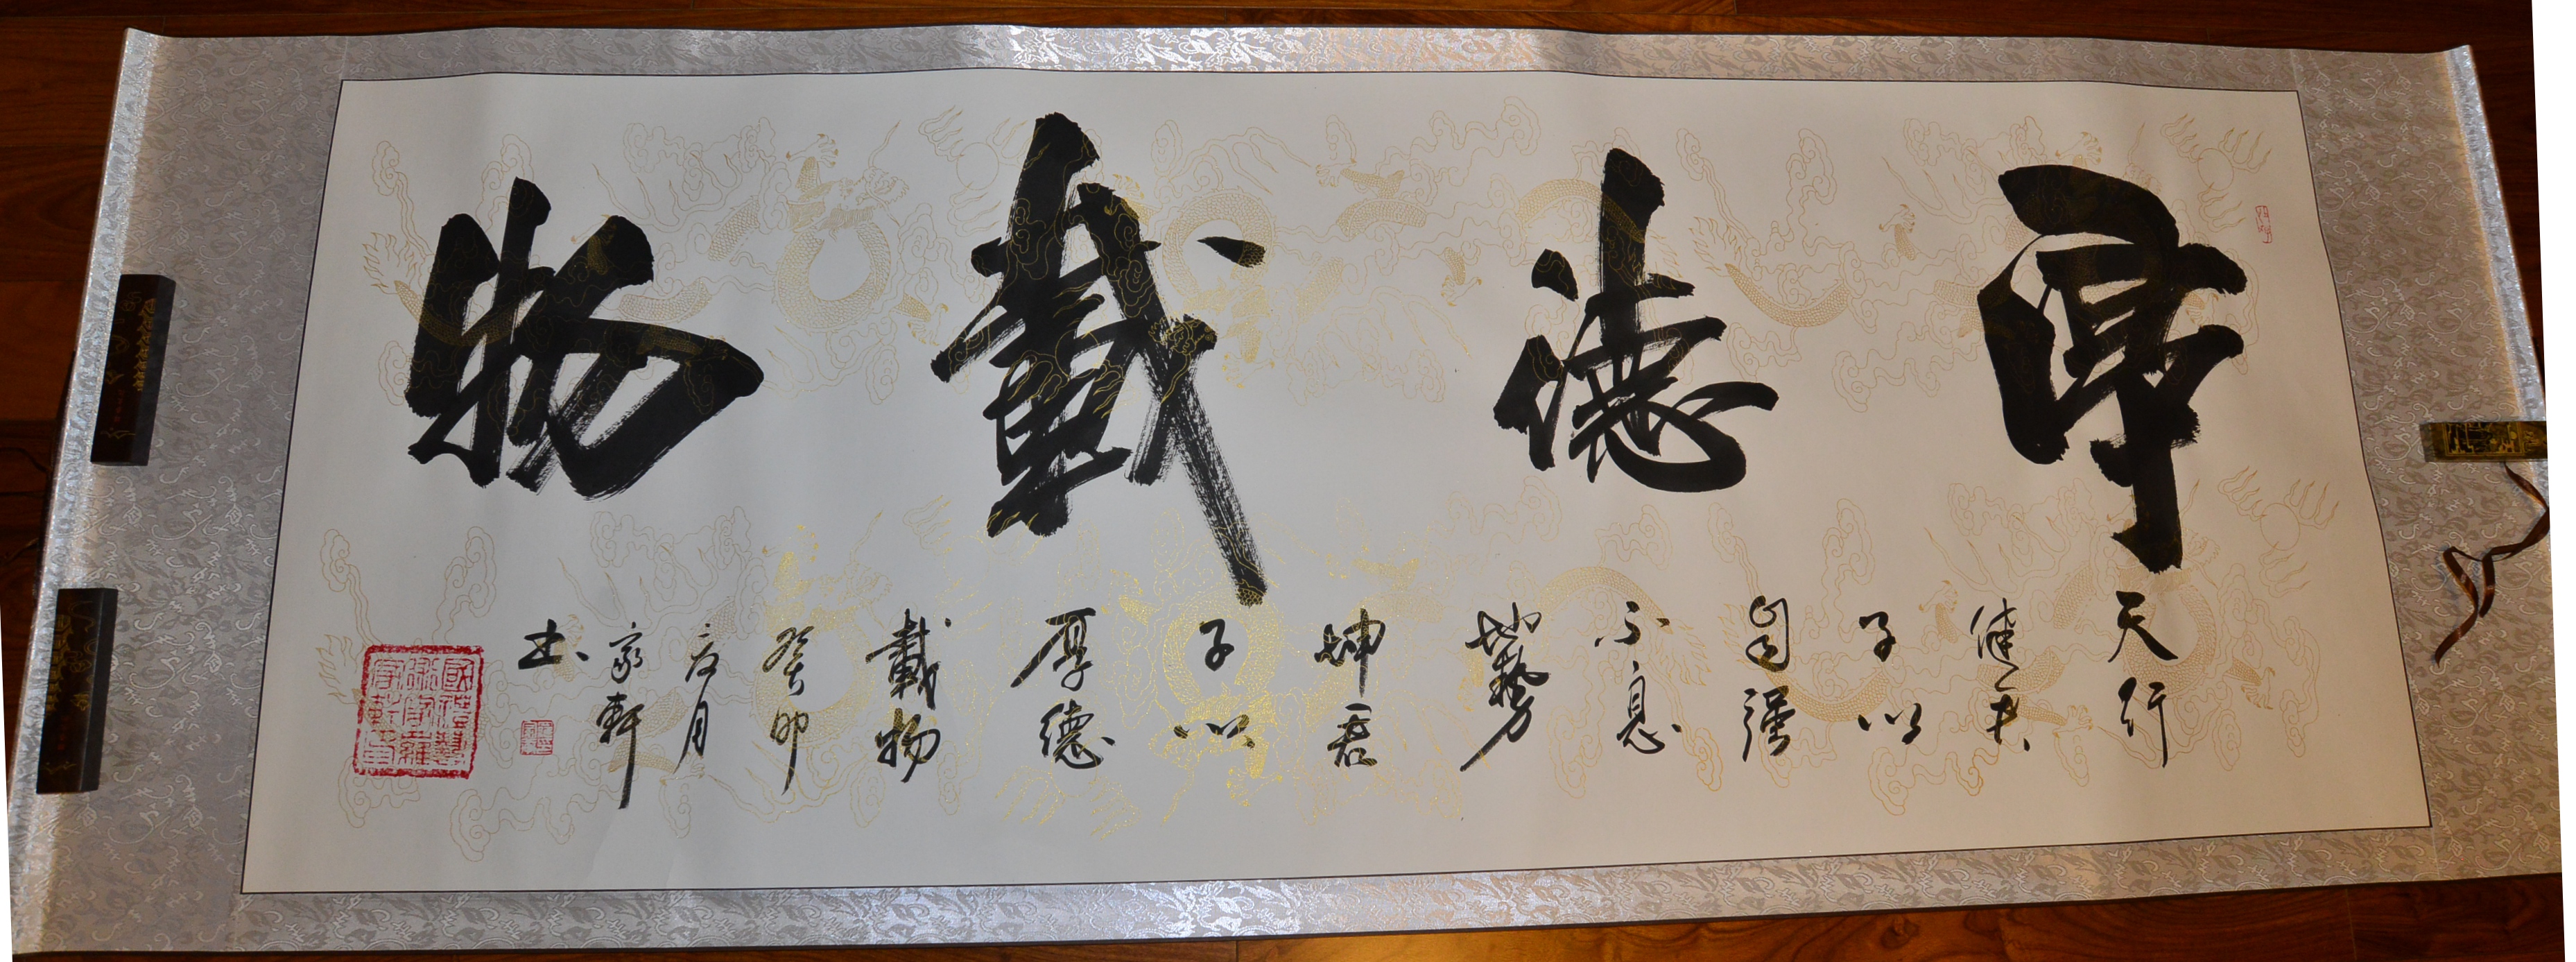 厚德載物
天行
健君
子以
自强
不息
地勢
坤君
子以
厚德
載物
癸卯
夏月
家軒
书